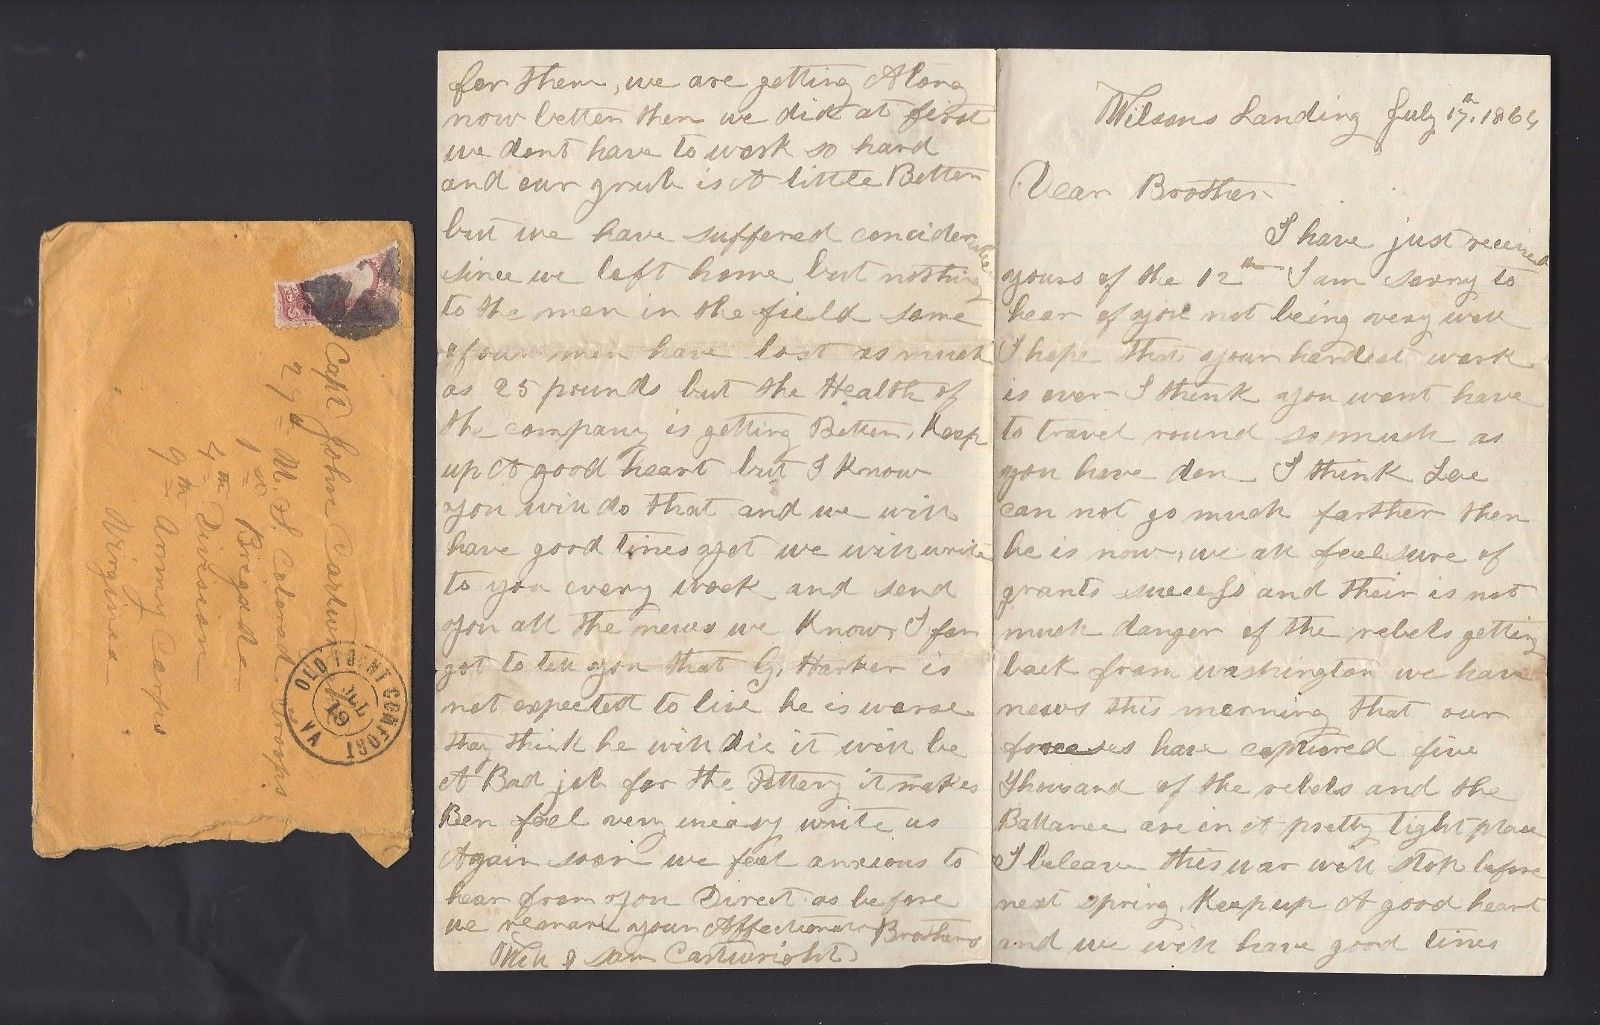 Capt John Cartwri
27th U. S. Colorad Troops
1st Brigade
4th Division
9th Army Corps
Virginea
OLD POINT COMFORT VA.
JUL
Wilsons Landing July 17th. 1864
Dear Brother
I have just received
yours of the 12th I am sorry to
hear of you not being very well
I hope that your hardest work
is over I think you wont have
to travel round so much as
you have don I think Lee
can not go much farther then
he is now, we all feel sure of
grants success and their is not
much danger of the rebels getting
back from washington we have
news this morning that our
forces have captured five
thousand of the rebels and the
Ballance are in A pretty tight place
I beleave this war will stop before
next spring. Keep up A good heart
and we will have good times
for them, we are getting Along
now better then we did at first
we dont have to work so hard
and our grub is A little Better
but we have suffered conciderable
since we left home but nothing
to the men in the field some
of our men have lost as much
as 25 pounds but the Health of
the company is getting Better, Keep
up A good heart but I Know
you will do that and we will
have good times yet we will write
to you every week and send
you all the news we Know, I for
got to tell you that G. Harker is
not expected to live he is worse
thay think he will die it will be
A Bad job for the Pottery it makes
Ben feel very uneasy write us
Again soon we feel anxious to
hear from you Direct as before
we remain your Affectionate Brothers
Will & Sam Cartwright